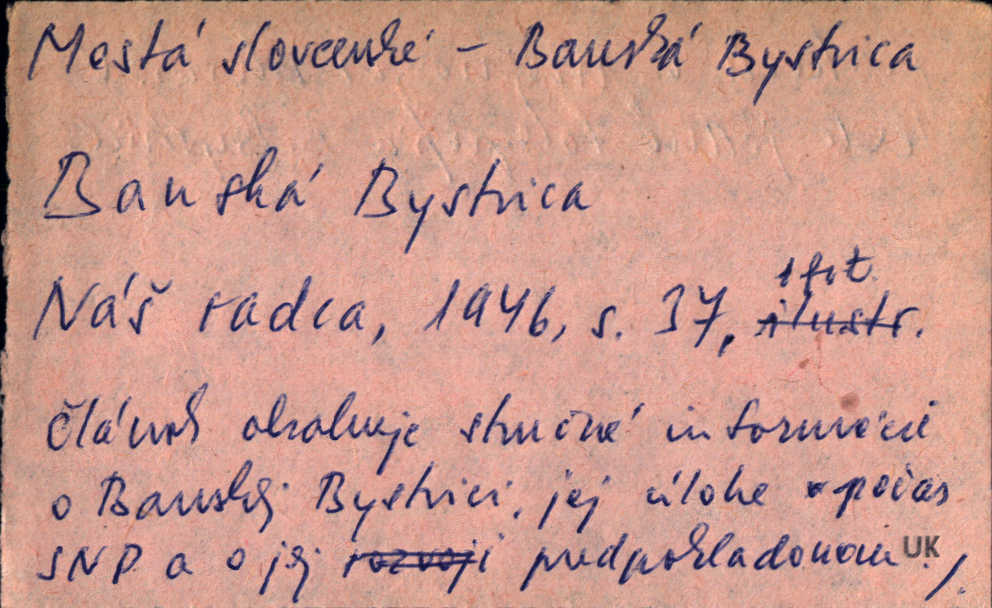 Mestá slovenské - Banská Bystrica
Banská Bystrica
1 fot.
Náš radca, 1946, s. 37, ilustr.
Článok obsahuje stručné informácie
o Banskej Bystrici, jej úlohe počas
SNP a o jej rozvoji predpokladanom
UK